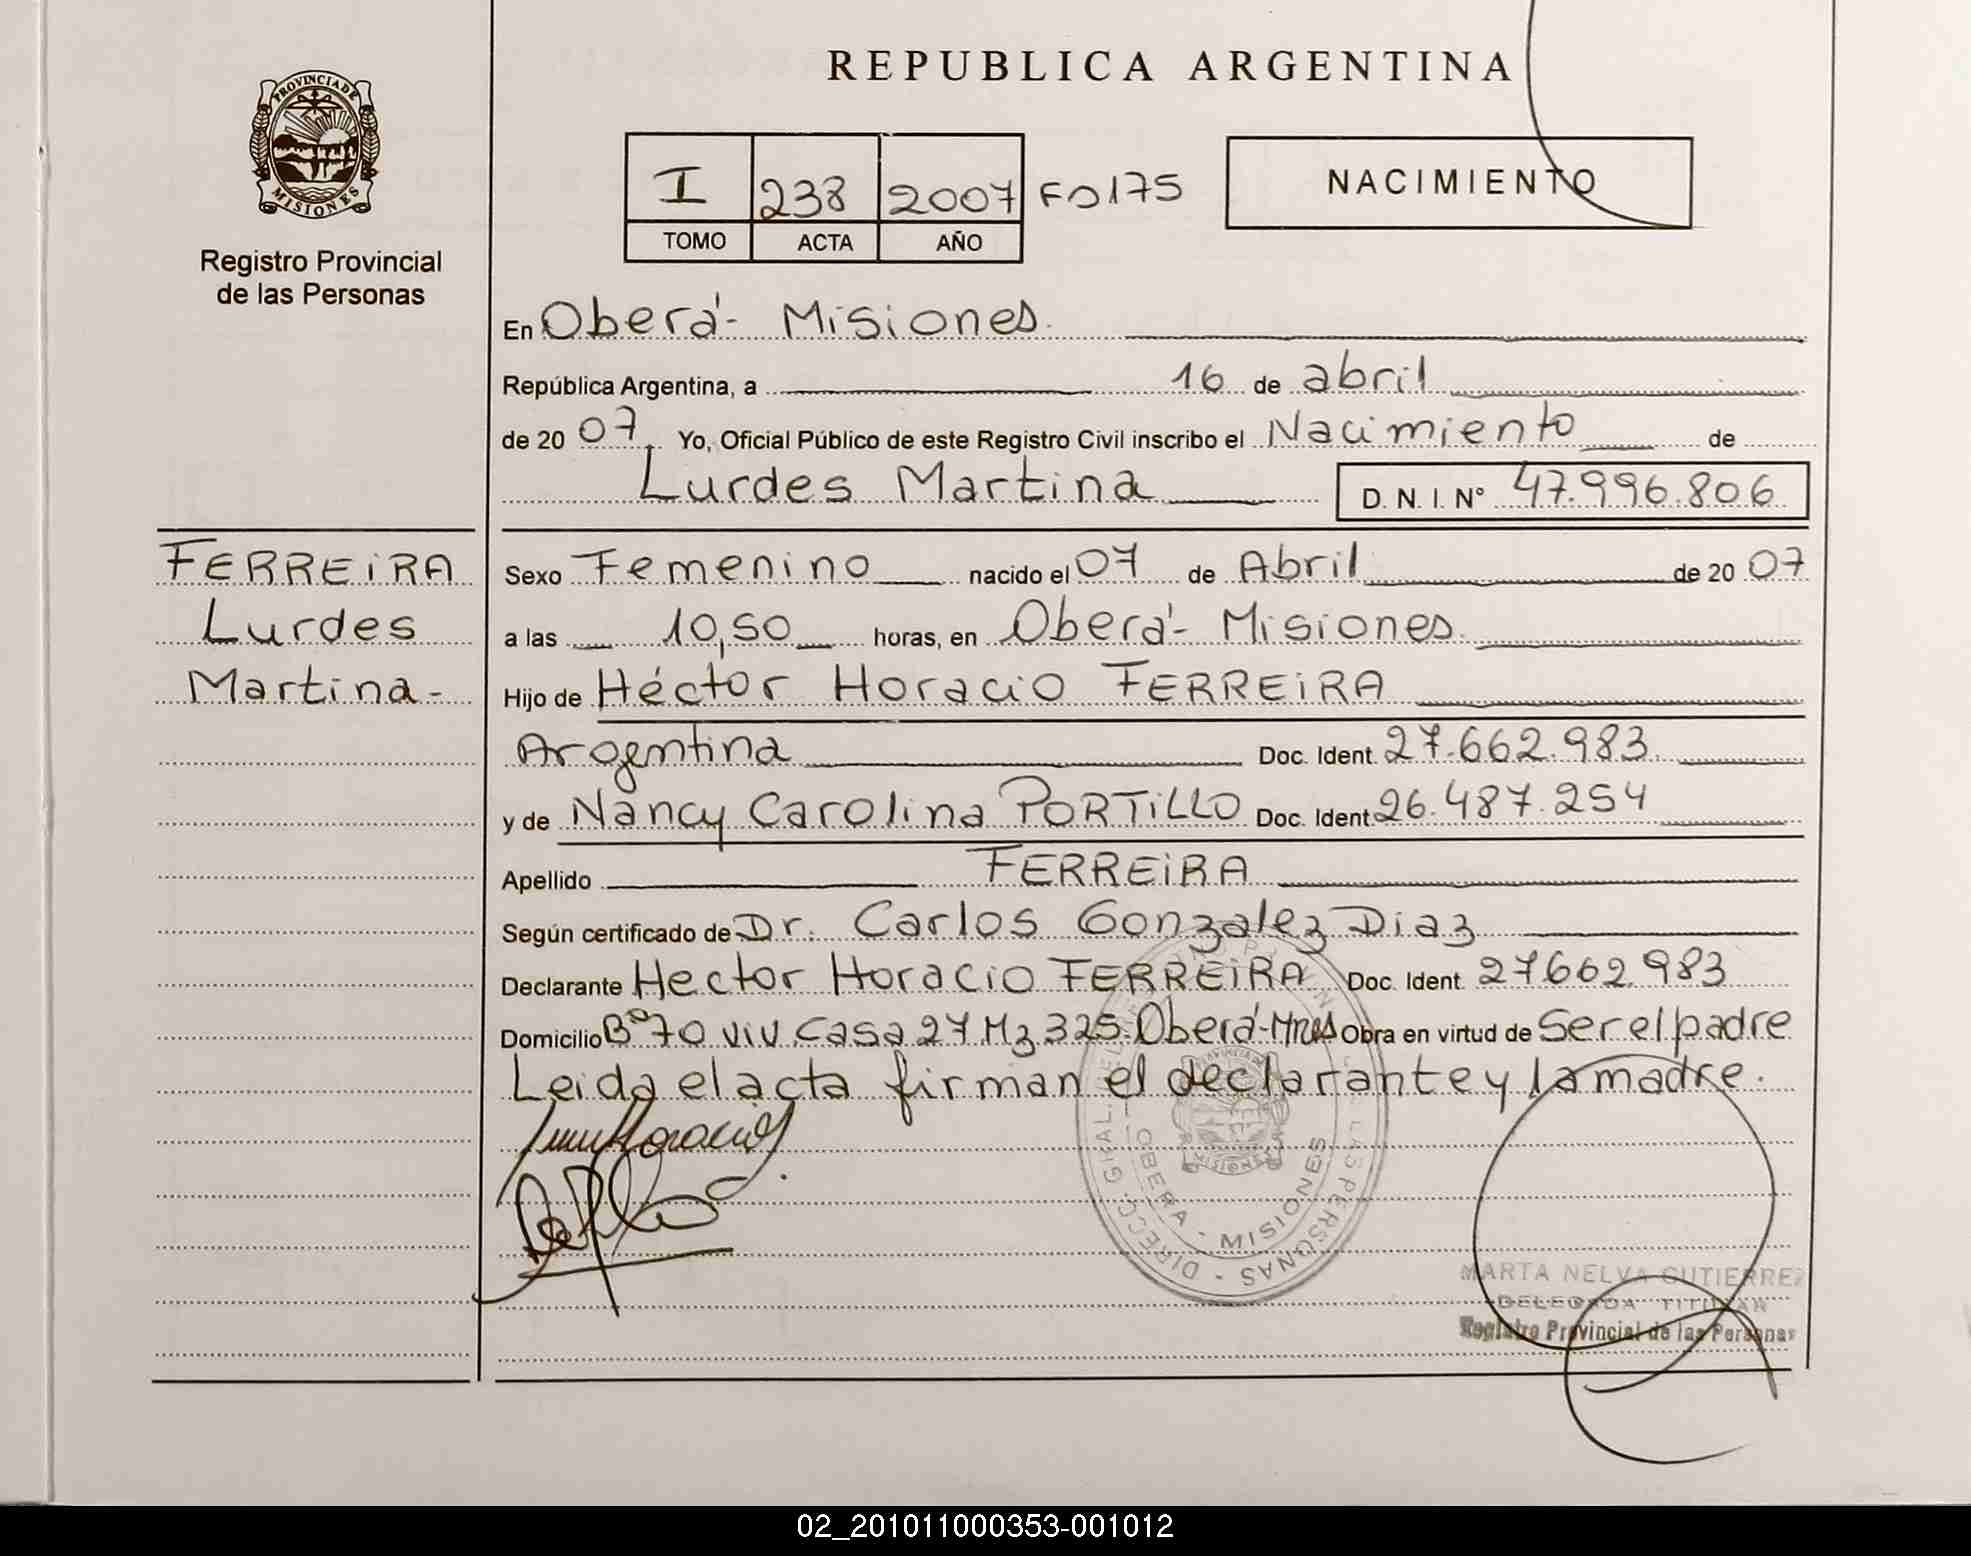 REPUBLICA ARGENTINA
PROVINCIA DE
MISIONES
Registro Provincial
de las Personas
I 238 2007 Fº175
TOMO ACTA AÑO
NACIMIENTO
En Oberá- Misiones.
República Argentina, a 16 de abril
de 20 07. Yo, Oficial Público de este Registro Civil inscribo el Nacimiento de
Lurdes Martina D. N. I. Nº 47.996.806
FERREIRA
Lurdes
Martina-
Sexo Femenino nacido el 07 de Abril de 20 07
a las 10,50 horas, en Oberá- Misiones.
Hijo de Héctor Horacio FERREIRA
Argentina Doc. Ident. 27.662.983
y de Nancy Carolina PORTiLLO Doc. Ident. 26.487.254
Apellido FERREIRA
Según certificado de Dr. Carlos Gonzalez Diaz
Declarante Hector Horacio FERREIRA Doc. Ident. 27662.983
Domicilio Bº 70 viv. Casa 27 Mz 325. Oberá-Mnes Obra en virtud de Ser el padre
Leida el acta firman el declarante y la madre.
OBERA - MISIONES
MARTA NELVA GUTIERREZ
DELEGADA TITULAR
Registro Provincial de las Personas
02_201011000353-001012